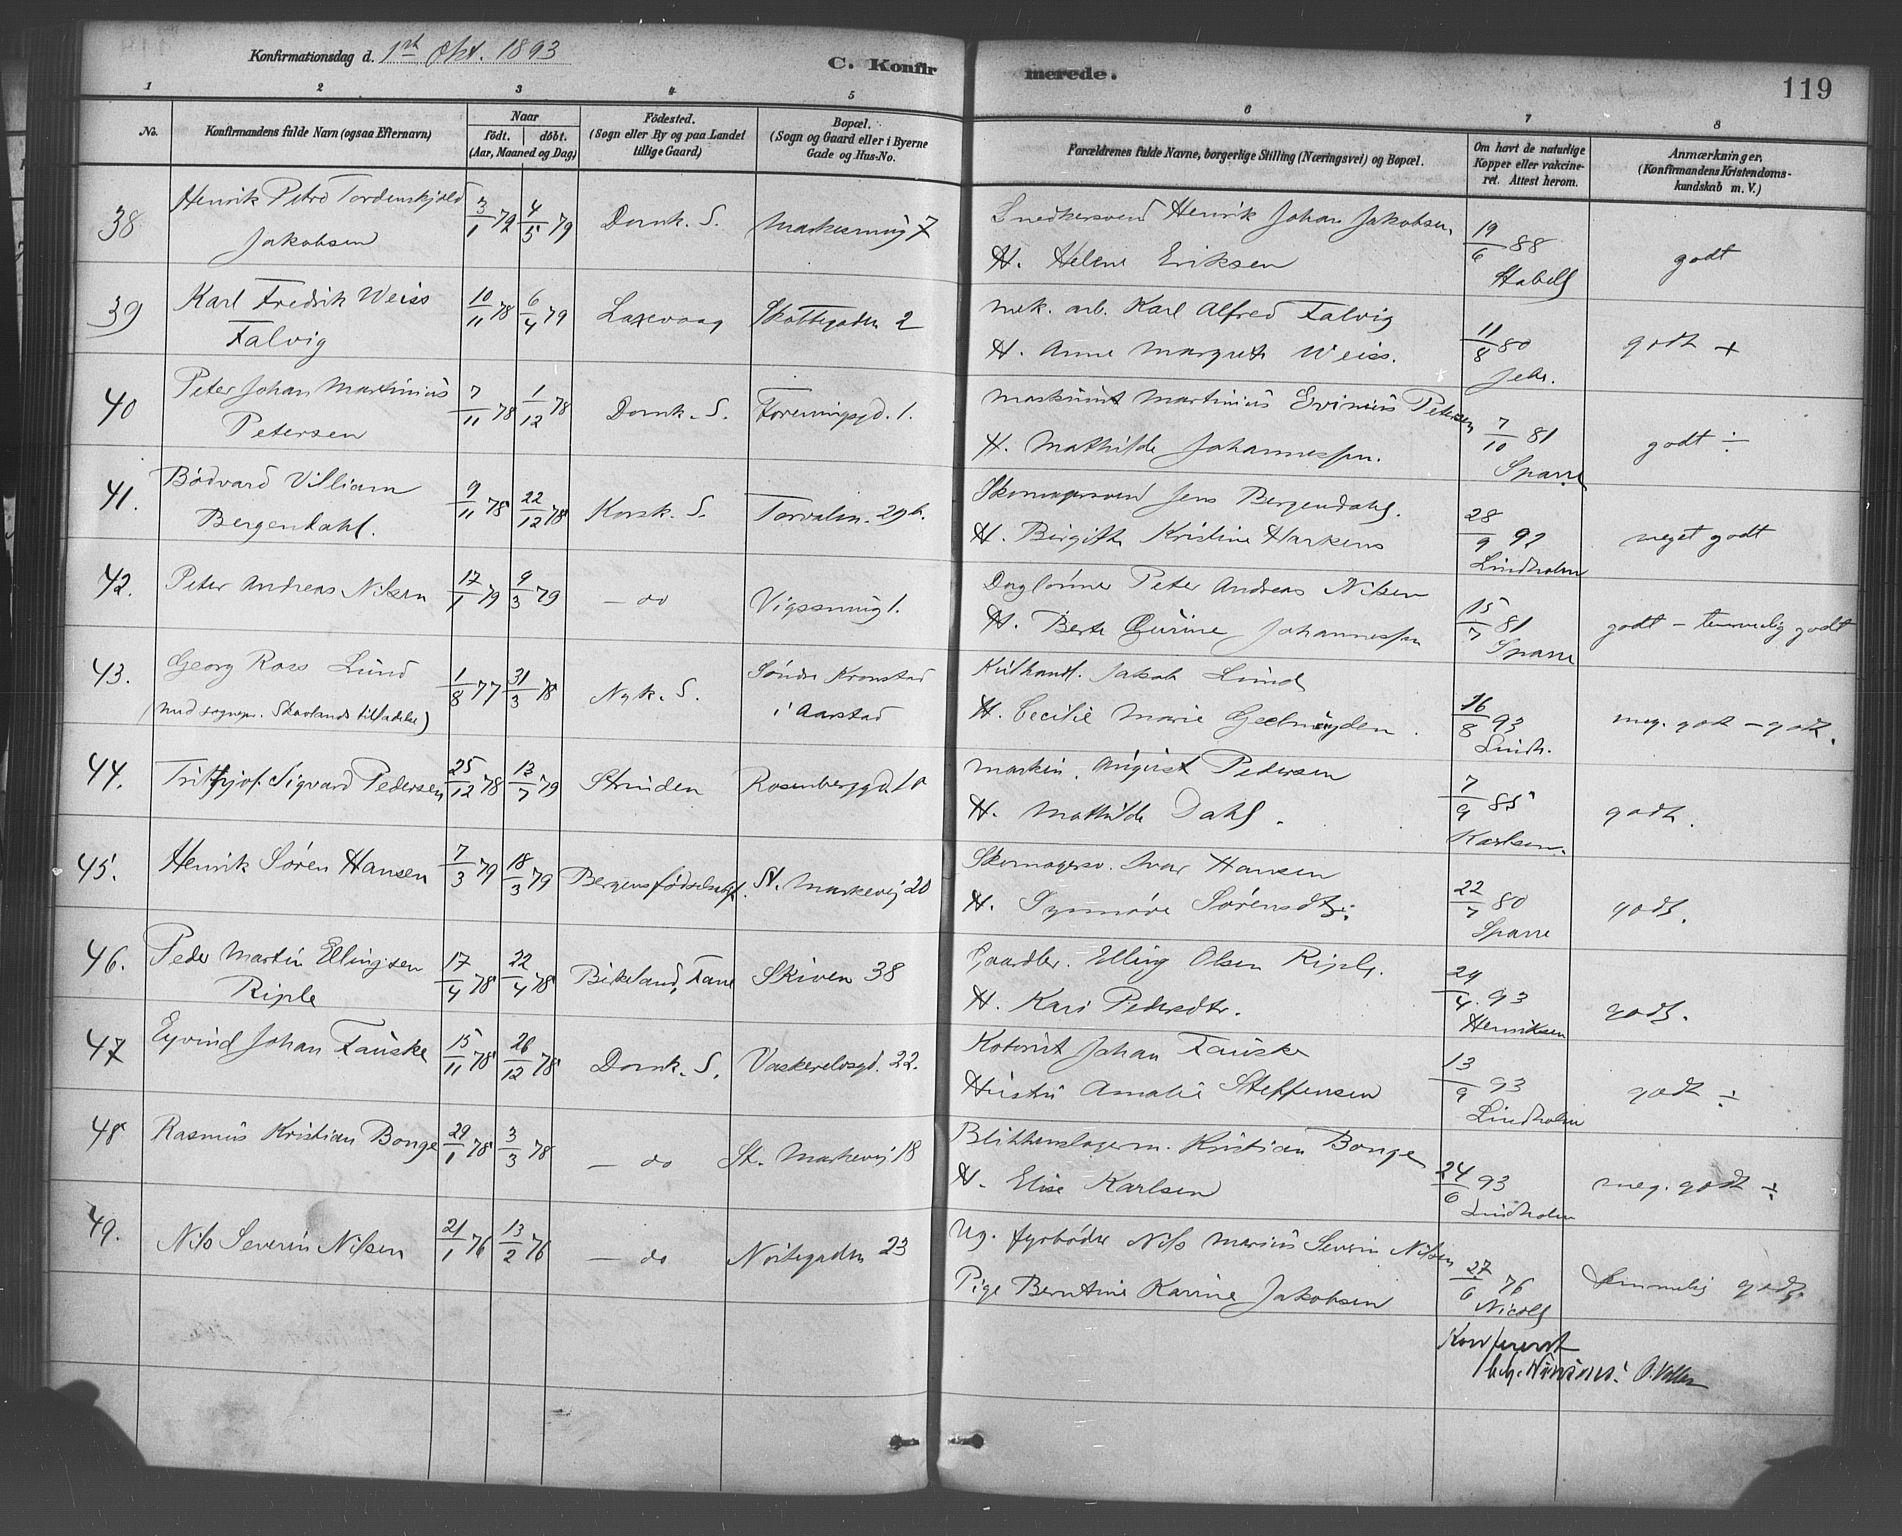 Konfirmationsdag d. 1st Okt. 1893
C. Konfirmerede.
119
1 2 3 4 5 6 7 8
No.
Konfirmandens fulde Navn (ogsaa Efternavn)
Naar
födt. döbt.
(Aar, Maaned og Dag)
Födested.
(Sogn eller By og paa Landet
tillige Gaard)
Bopæl.
(Sogn og Gaard eller i Byerne
Gade og Hus-No.
Forældrenes fulde Navne, borgerlige Stilling (Næringsvei) og Bopæl.
Om havt de naturlige
Kopper eller vakcine-
ret. Attest herom.
Anmærkninger.
(Konfirmandens Kristendoms-
kundskab m. V.)
38 Henrik Petro Tordenskjold 3/1 79 4/5 79 Domk. S. Markesmug 7 Snedkersvend Henrik Johan Jakobsen, 19/6 88 godt
Jakobsen H. Helene Eriksen Stabell
39 Karl Fredrik Weiss 10/11 78 6/4 79 Laxevaag Skottegaden 2 mek. arb. Karl Alfred Falvig 11/8 80 godt +
Falvig H. Anne Margreth Weiss. Jebs.
40 Peter Johan Martinius 7/11 78 1/12 78 Domk. S. Foreningsgd. 1. Maskinist Martinius Evinius Petersen 7/10 81 godt ÷
Petersen H. Mathilde Johannessen. Sparre
41. Bødvard Villiam 9/11 78 22/12 78 Korsk. S. Torvalm. 29 b. Skomagersvend Jens Bergendahl. 28/9 92 meget godt
Bergendahl. H. Birgitte Kristine Harkens Lindholm
42. Peter Andreas Nilsen 17/1 79 9/3 79 — do Vigssmug 1. Daglønner Peter Andreas Nilsen 15/7 81 godt - temmelig godt
H. Berte Gurine Johannessen Sparre
43. Georg Ross Lund 1/8 77 31/3 78 Nyk. S. Søndre Kronstad Kulhandl. Jakob Lund 16/8 93 meg. godt - godt.
(med sognepr. Skavlands tilladelse) i Aarstad H. Cecilie Marie Geelmuyden. Lindh.
44. Fritthjof Sigvard Pedersen 25/12 78 13/7 79 Strinden Rosenberggd. 10 Maskin. August Pedersen 7/9 85 godt.
H. Mathilde Dahl. Karlsen.
45. Henrik Søren Hansen 7/3 79 18/3 79 Bergens fødselsst. St. Markevej 20 Skomagersv. Ivar Hansen 22/7 80 godt.
H. Synnøve Sørensdtr. Sparre
46. Peder Martin Ellingsen 17/4 78 22/4 78 Birkeland, Fane Skiven 38 Gaardbr. Elling Olsen Riple. 24/4. 93 godt.
Riple H. Kari Pedersdtr. Henriksen
47 Eyvind Johan Fauske 15/11 78 26/12 78 Domk. S. Vaskerelvsgd. 22. Johan Fauske 13/9 93 godt ÷
Hustru Amalie Steffensen Lindholm
48 Rasmus Kristian Bonge 29/1 78 3/3 78 — do St. Markevej 18 Blikkenslagerm. Kristian Bonge 24/6 93 meg. godt ÷
H. Elise Karlsen Lindholm
49. Nils Severin Nilsen 21/1 76 13/2 76 — do Nøstegaden 23 Ug. fyrbøder Nils Marius Severin Nilsen 27/6 76 temmelig godt.
Pige Berntine Karine Jakobsen Nicoll
Konfereret